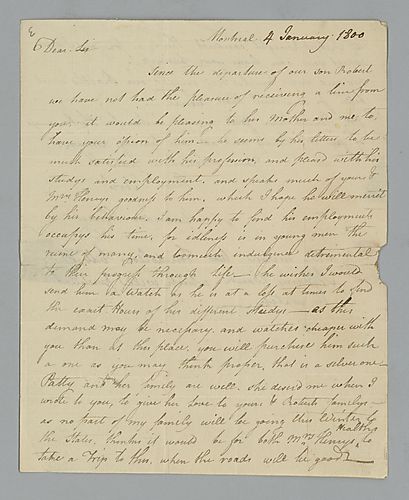 Montreal 4 January 1800
Dear Sir
Since the departure of our son Robert
we have not had the pleasure of receiving a line from
you, it would be pleasing to his Mother and me, to
have your opinion of him — he seems by his letters to be
much satisfied with his profession, and pleased with his
studys and employment, and speaks much of yours &
Mrs Henrys goodness to him, which I hope he will merit
by his behaviour. I am happy to find his employments
occupys his time, for idleness is in young men the
ruine of many, and too much indulgence detrimental
to their progress through life — he wishes I would
send him a Watch as he is at a loss at times to find
the exact Hours of his different Studys — as this
demand may be necessary, and watches cheaper with
you than at this place, you will purchase him such
a one as you may think proper, that is a silver one —
Patty and her family are well. she desired me when I
wrote to you, to give her love to yours & Roberts familys —
as no part of my family will be going this Winter to
the States, thinks it would be for both Mrs Henrys Healths to
take a trip to this, when the roads will be good